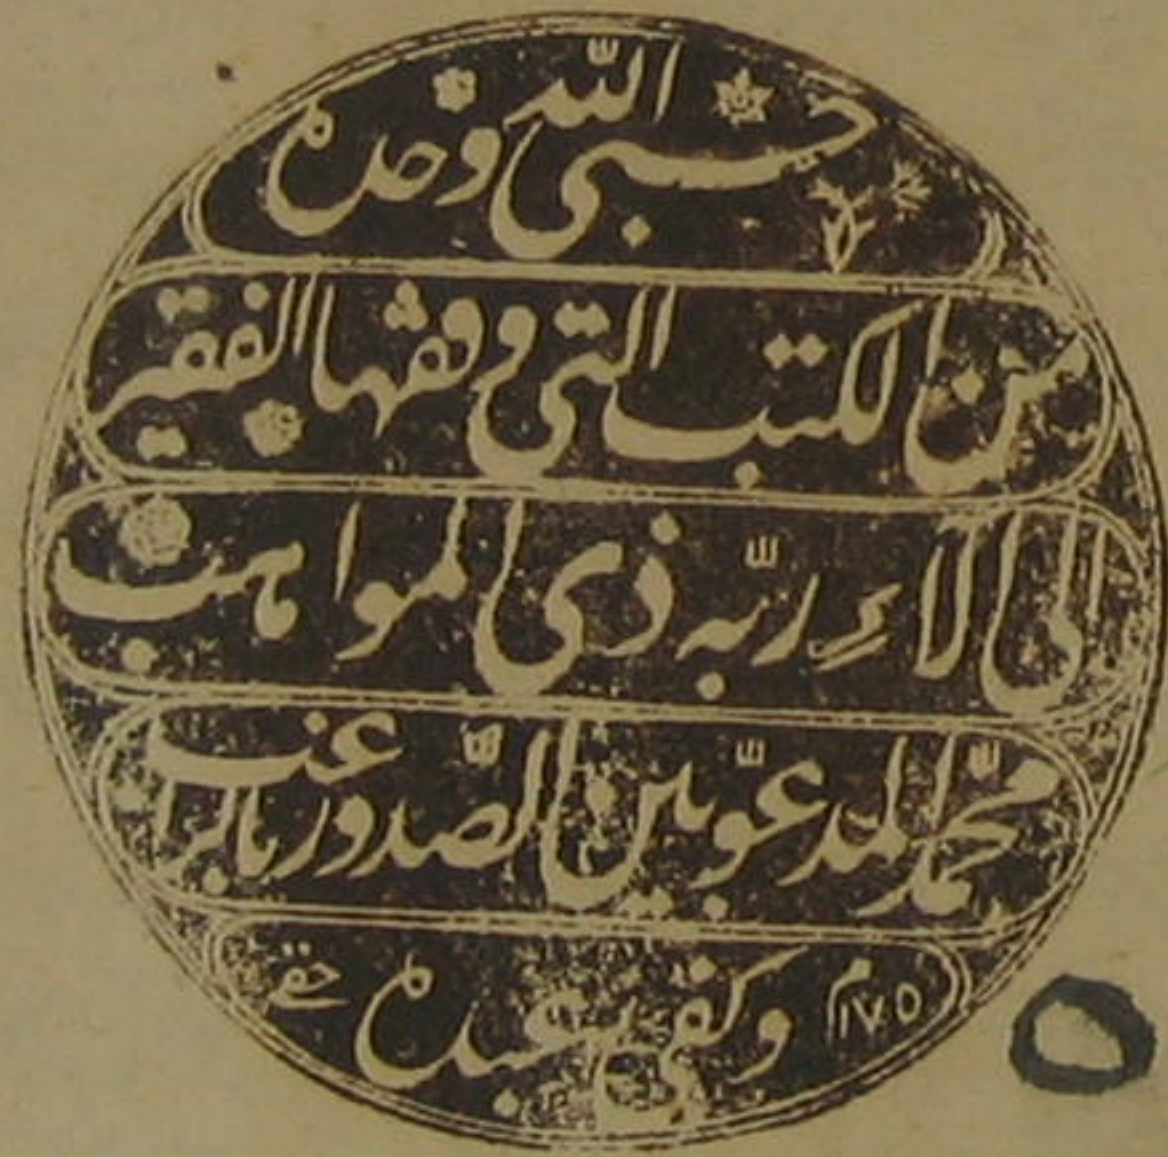 حسبي الله وحده
من الكتب التي وقفها الفقير
الى آلاء ربه ذي المواهب
محمد المدعو بين الصدور بالراغب
وكفى عبده
١١٧٥